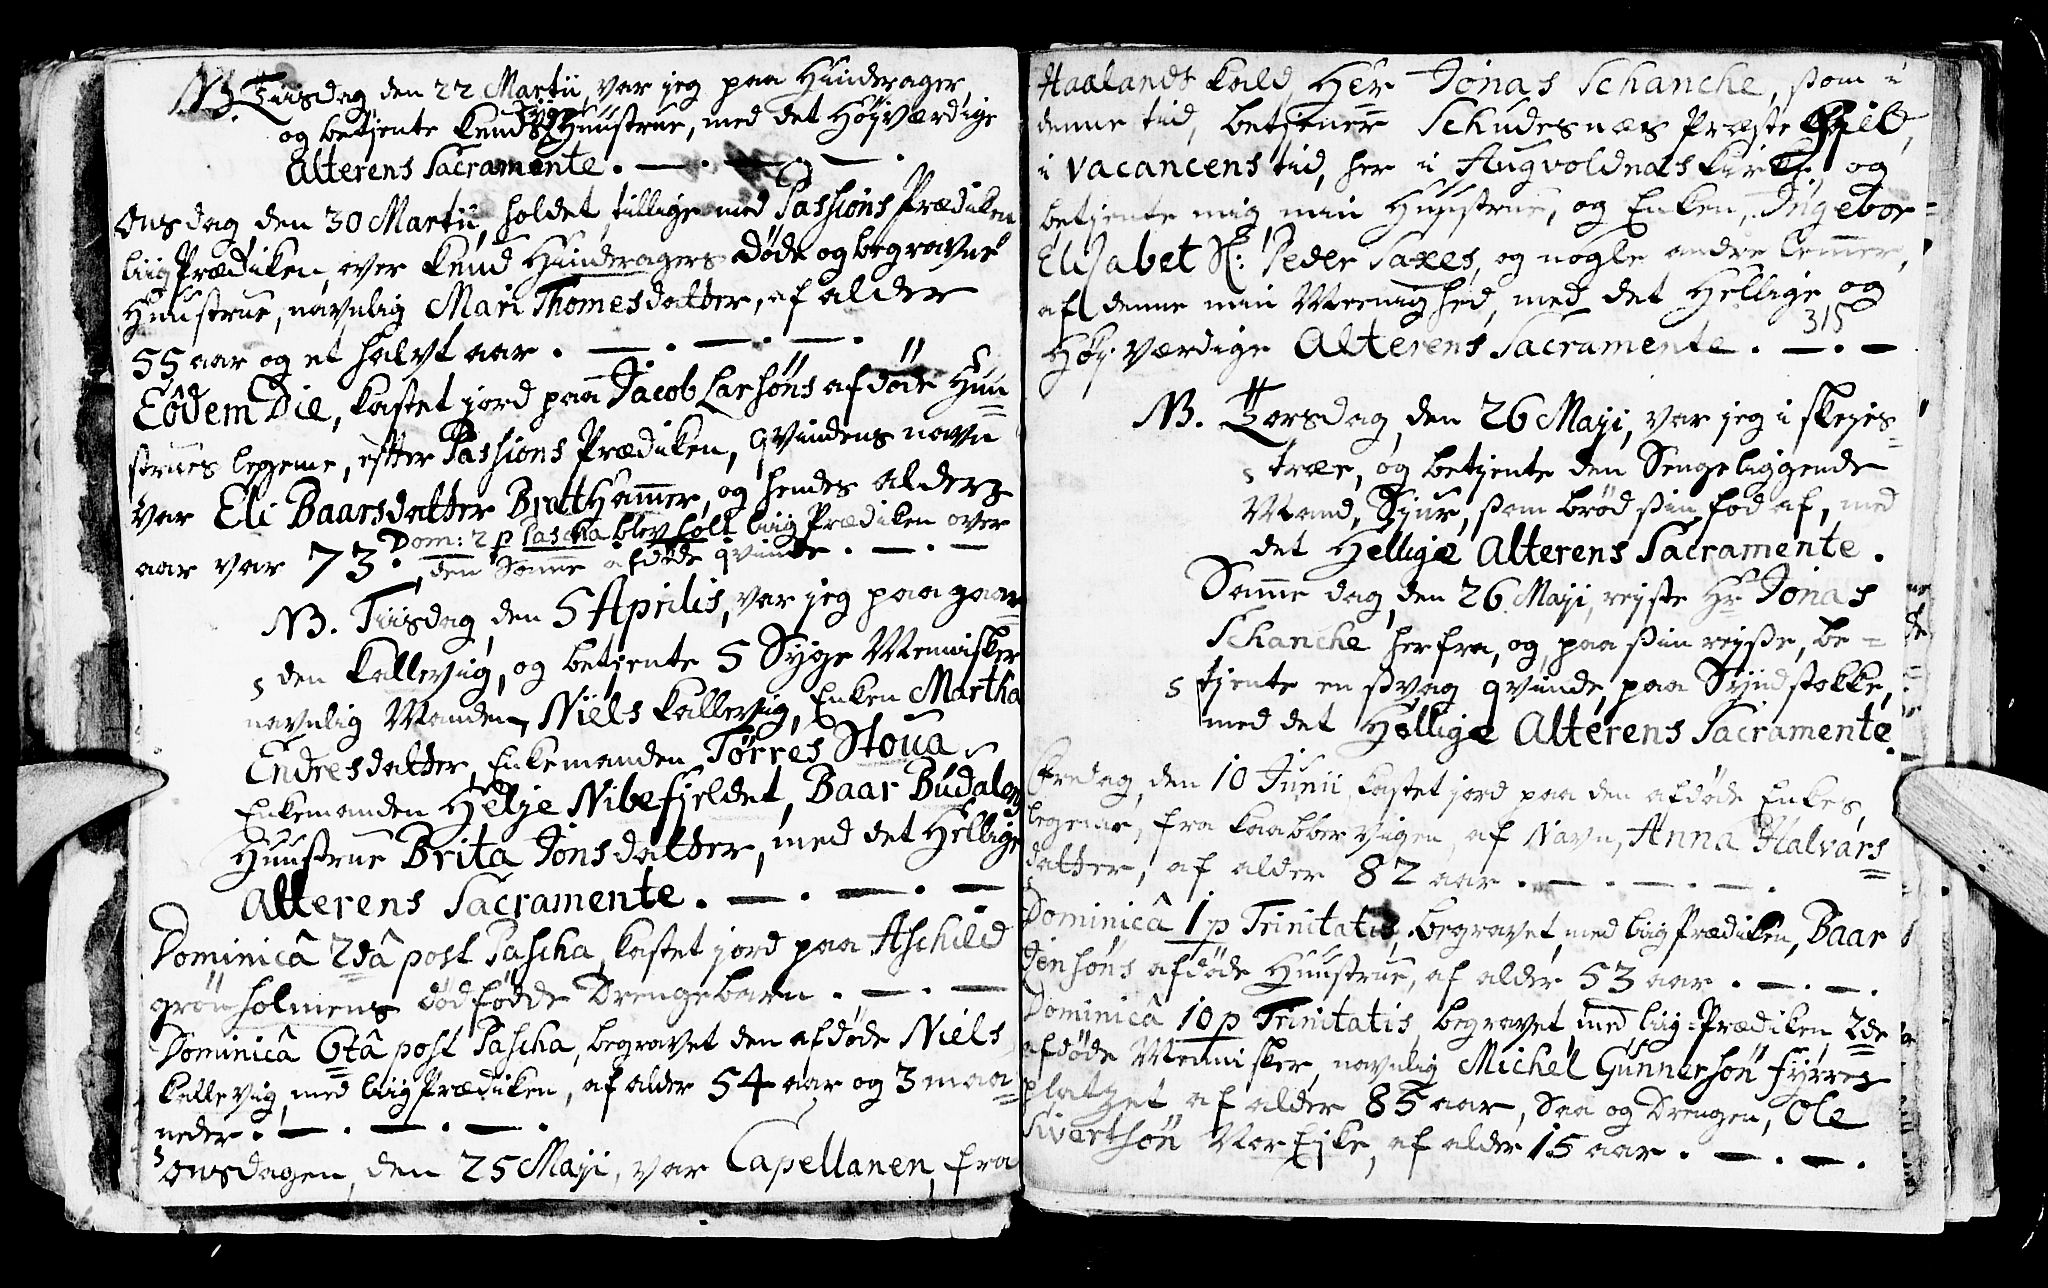 NB. Tiisdag, den 22 Martii, var jeg paa Hinderager,
og betjente Knuds Syge Huustrue, med det Højværdige
Alterens Sacramente. — . — . — .
Onsdag den 30 Martii, holdet, tillige med Passions Prædiken
liig Prædiken, over Knud Hinderagers døde og begravne
Huustrue, navnlig Mari Thomesdatter, af alder
55 aar og et halvt aar. — . — . — .
Eôdem Die, kastet jord paa Jacob Larsøns afdøde Huu=
strues legeme, efter Passions Prædiken, qvindens navn
var Eli Baarsdatter Bratthammer, og hendes alders
aar var 73. Dom: 2 p Pascha blev holt liig Prædiken over
den Samme afdøde qvinde. — . —
NB. Tiisdag, den 5 Aprilis, var jeg paa gaar=
s den Kallevig, og betjente 5 Syge Mennisker
navnlig Manden, Niels Kallevig, Enken Martha
Endresdatter, Enkemanden Tørres Stoua,
Enkemanden Helje Nibefjeldet, Baar Budalens
Huustrue Brita Jonsdatter, med det Hellige
Alterens Sacramente. — . — . —
Dominicâ 2dâ post Pascha, kastet jord paa Aschild
grønholmens dødfødde Drengebarn. — . —
Dominicâ 6tâ post Pascha, begravet den afdøde Niels
Kallevig, med liig Prædiken, af alder 54 aar og 3 maa=
neder. — . — . — .
s Onsdagen, den 25 Maji, var Capellanen, fra
Haalands kald, Her Jonas Schanche, som i
denne tid, betjener Schudesnæs Præste Gield,
i vacancens tid, her i Augvoldnæs kirke, og
betjente mig min Huustrue, og Enken, Ingebor=
Elisabet Sl: Peder Saxes, og nogle andre lemmer,
af denne min Meenighed, med det Hellige og
315
Høj værdige Alterens Sacramente. — . —
NB. Torsdag, den 26 Maji, var jeg i Skejes=
s træe, og betjente den Sengeliggende
Mand, Sjur, som brød sin fod af, med
det Hellige Alterens Sacramente.
Samme dag, den 26 Maji, rejste Hr Jonas
Schanche herfra, og, paa sin rejse, be=
s tjente en svag qvinde, paa Syndstokke,
med det Hellige Alterens Sacramente.
Fredag, den 10 Junii, kastet jord paa den afdøde Enkes,
legeme, fra Kaabbervigen, af Navn, Anna Halvars=
datter, af alder 82 aar. — . — . — .
Dominicâ 1 p Trinitatis, begravet, med liig Prædiken, Baar
Jensøns afdøde Huustrue, af alder 53 aar. — . — .
Dominicâ 10 p Trinitatis, begravet, med liig=Prædiken, 2de
afdøde Mennisker, navnlig Michel Gunnersøn Fyrres
platzet, af alder 85 aar, Saa og Drengen, Ole
Sivertsøn Nor Ejke, af alder 15 aar. — . — .